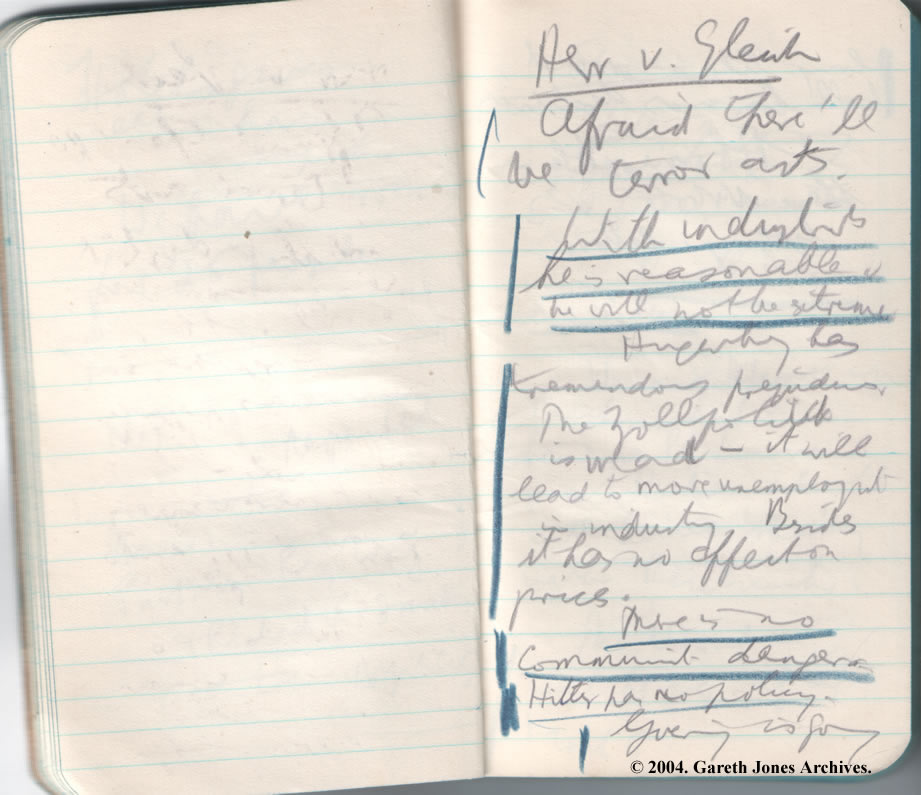 Herr v. Gleich
Afraid there'll
be terror acts.
With industrialists
he is reasonable &
he will not be extreme
Hugenberg has
tremendous prejudices.
The Zollpolitik
is mad – it will
lead to more unemployment
in industry Besides
it has no effect on
prices.
There is no
Communist danger
Hitler has no policy.
Goering is going
© 2004. Gareth Jones Archives.